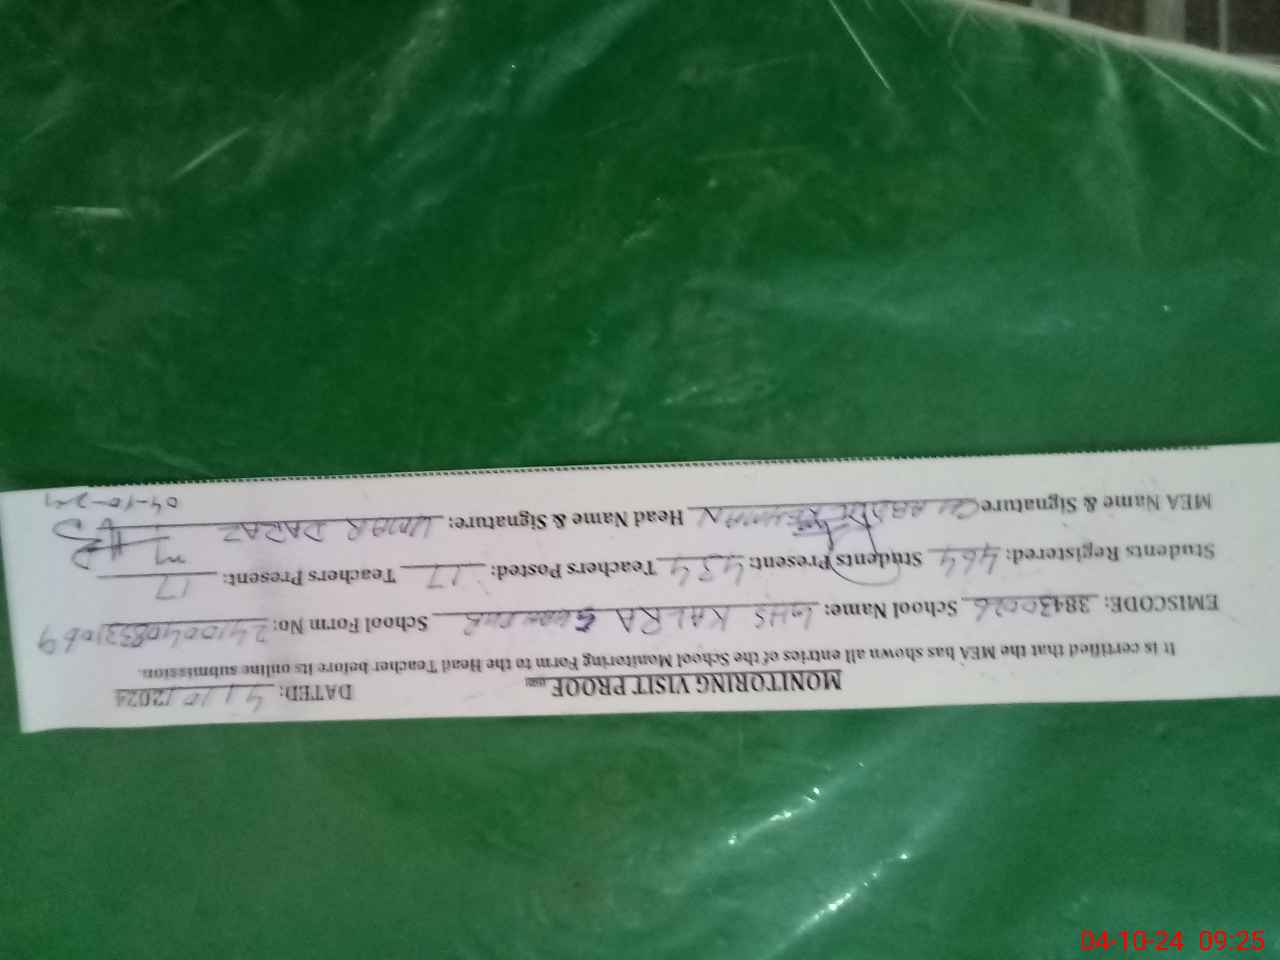 MONITORING VISIT PROOF DATED: 4/10/2024
It is certified that the MEA has shown all entries of the School Monitoring Form to the Head Teacher before its online submission.
EMISCODE: 38430026 School Name: GHS KALRA School Form No: 24100408531069
Students Registered: 464 Students Present: 434 Teachers Posted: 17 Teachers Present: 17
MEA Name & Signature CH ABDUL REHMAN Head Name & Signature: UMAR DARAZ
04-10-24
04-10-24 09:25